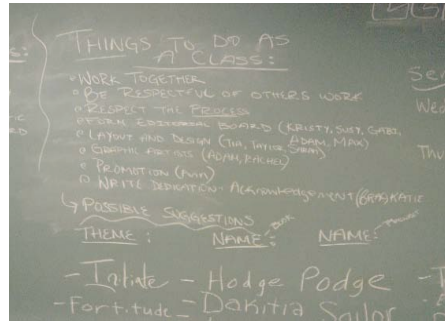 THINGS TO DO AS
A CLASS:
WORK TOGETHER
BE RESPECTFUL OF OTHERS WORK
RESPECT THE PROCESS
FORM EDITORIAL BOARD (KRISTY, SUSY, GABI,
ADAM, MAX)
LAYOUT AND DESIGN (TIA, TAYLOR, SARAH)
GRAPHIC ARTISTS (ADAM, RACHEL)
PROMOTION
WRITE DEDICATION - ACKNOWLEDGEMENT
POSSIBLE SUGGESTIONS
THEME: NAME: NAME:
- Initiate - Hodge Podge
- Fortitude - Dakitia Sailor
Wed
Thu